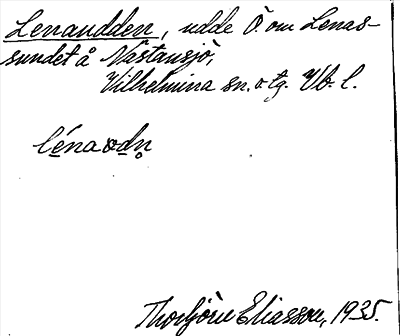 Lenaudden, udde Ö. om Lenas-
sundet å Nästansjö,
Vilhelmina sn. o. tg. Vb. l.
Thorbjörn Eliasson, 1935.